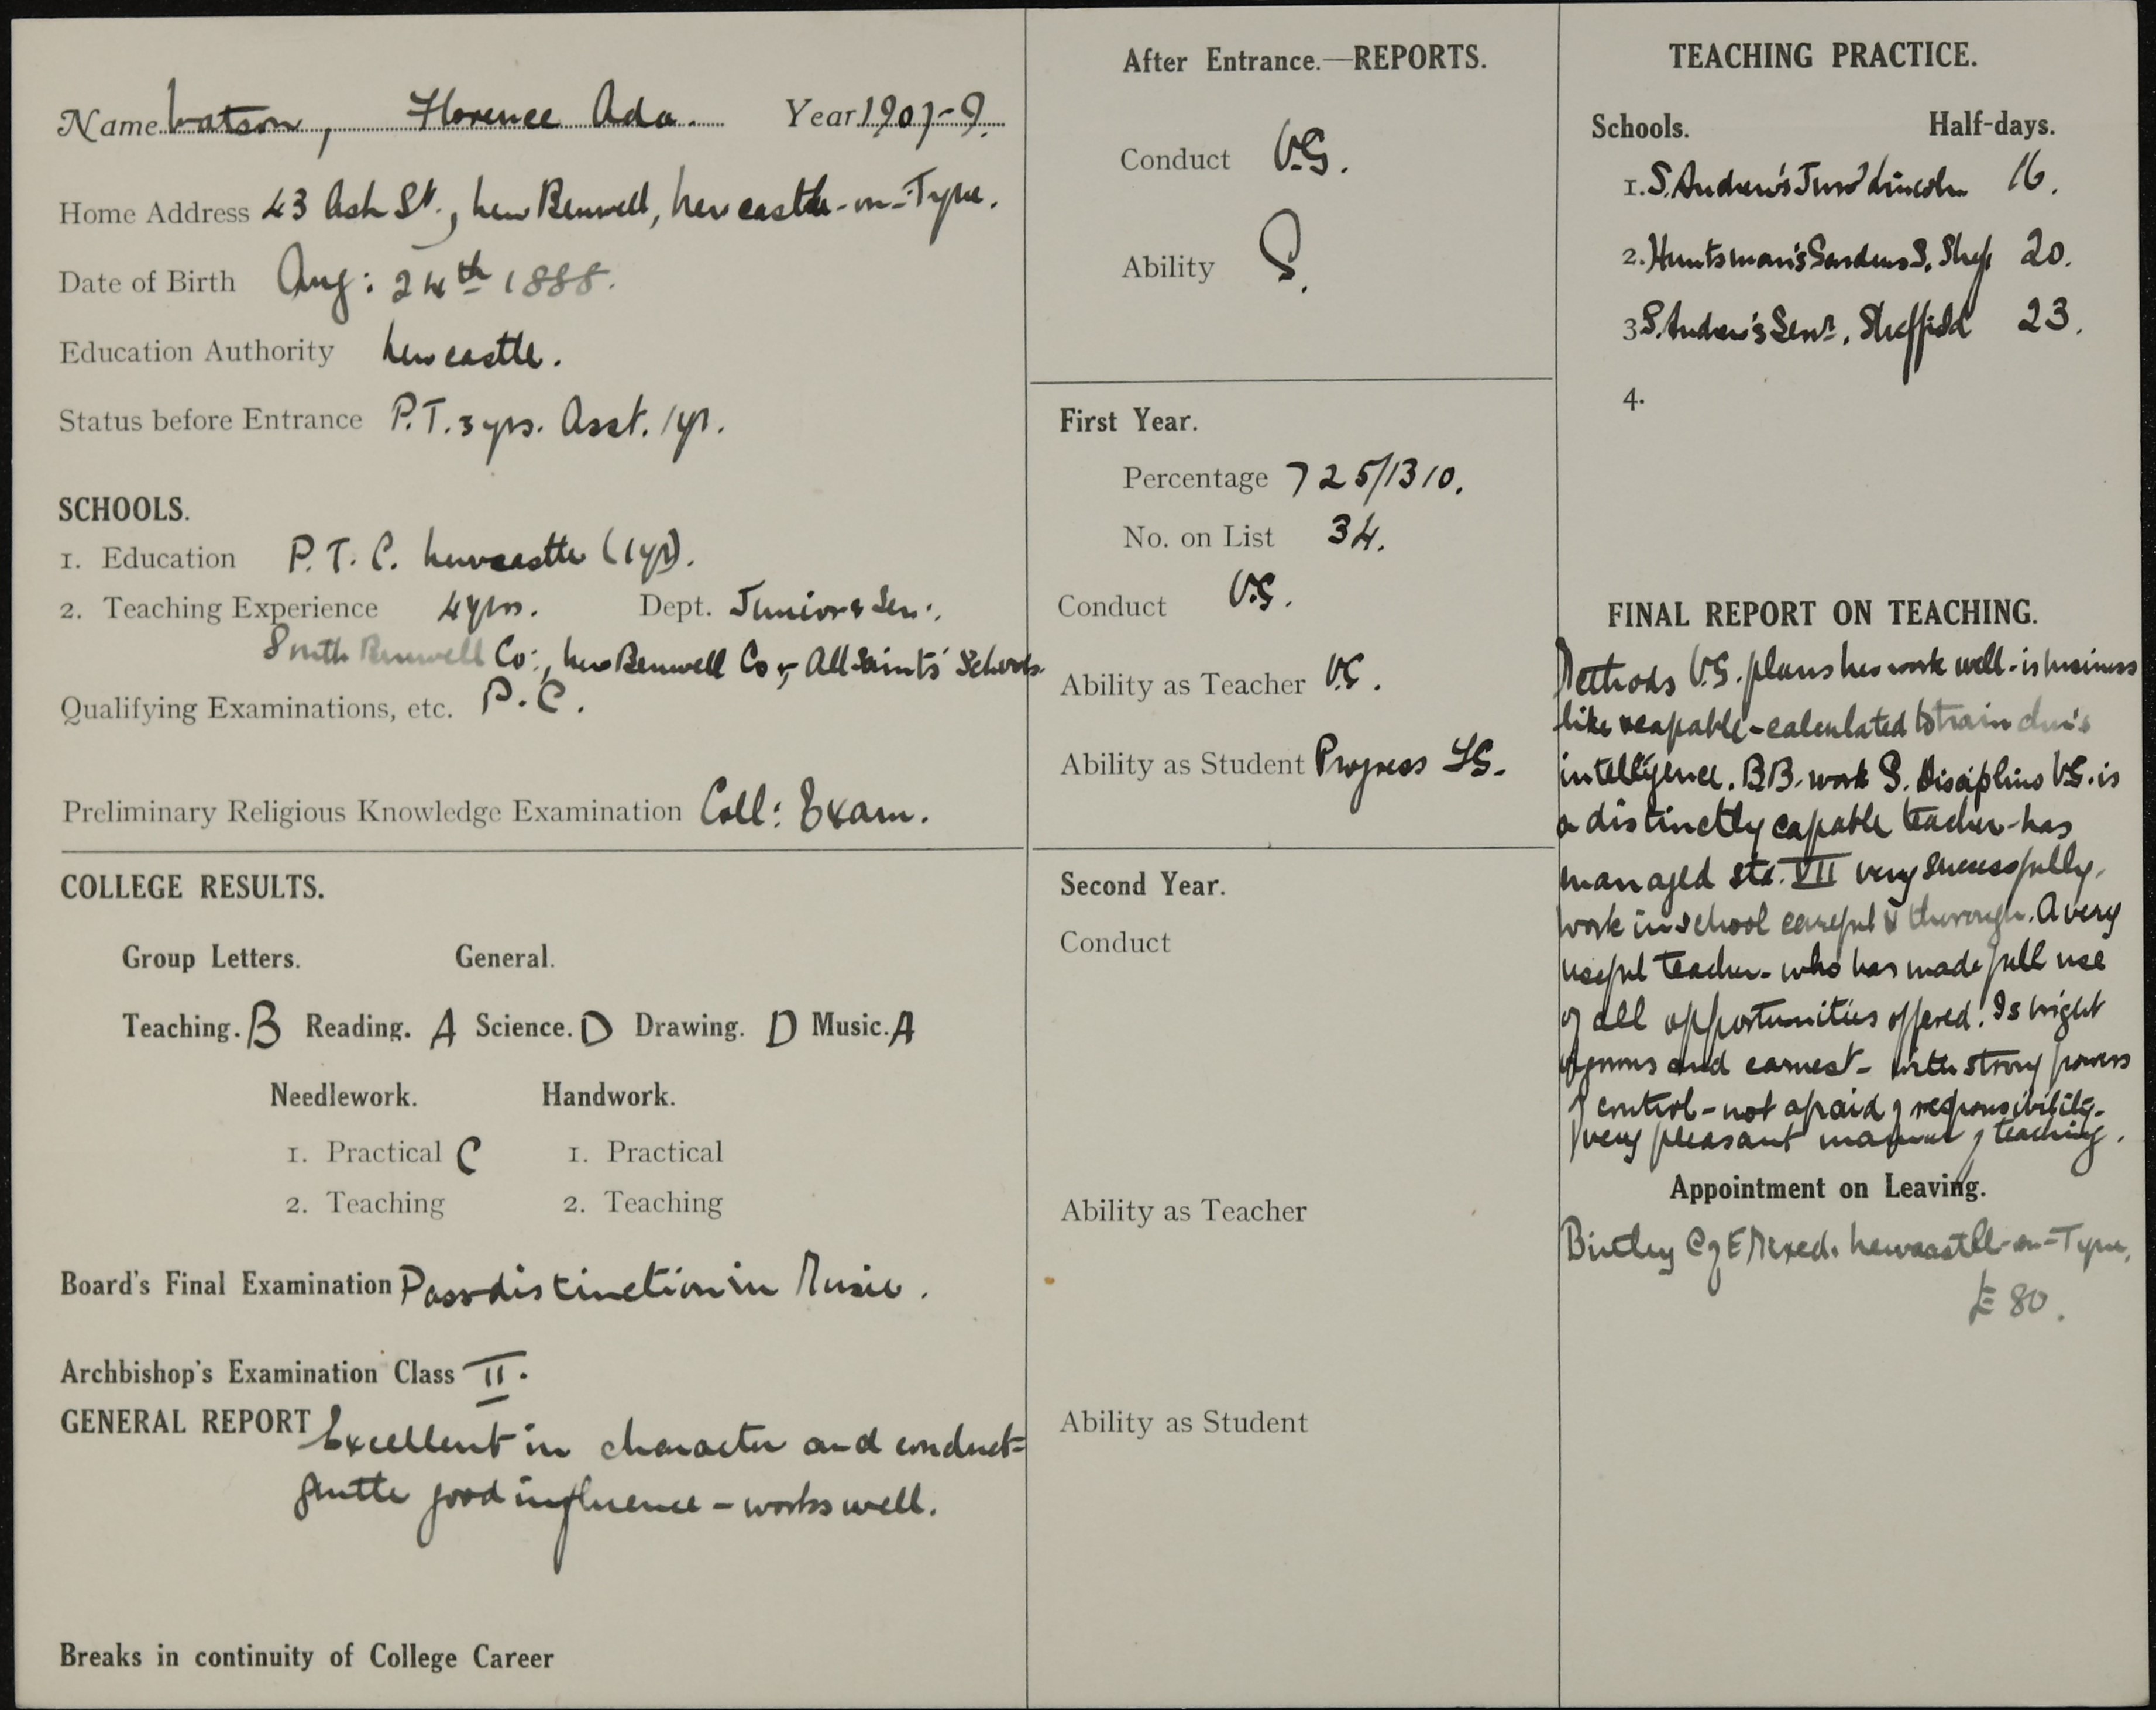 Name Watson, Florence Ada. Year 1907-9.
Home Address 43 Ash St., New Benwell, Newcastle-on-Tyne.
Date of Birth Aug: 24th 1888.
Education Authority Newcastle.
Status before Entrance P.T. 3 yrs. Asst. 1 yr.
SCHOOLS.
1. Education P.T.C. Newcastle (1yr).
2. Teaching Experience 4 yrs. Dept. Junior & Sen:.
South Benwell Co:, New Benwell Co & All Saints' Schools.
Qualifying Examinations, etc. P.C.
Preliminary Religious Knowledge Examination Coll: Exam.
COLLEGE RESULTS.
Group Letters. General.
Teaching. B Reading. A Science. D Drawing. D Music. A
Needlework. Handwork.
1. Practical C 1. Practical
2. Teaching 2. Teaching
Board's Final Examination Pass distinction in Music.
Archbishop's Examination Class II.
GENERAL REPORT Excellent in character and conduct-
gentle good influence - works well.
Breaks in continuity of College Career
After Entrance.—REPORTS.
Conduct V.G.
Ability G.
First Year.
Percentage 725/1310.
No. on List 34.
Conduct V.G.
Ability as Teacher V.G.
Ability as Student Progress F.G.
Second Year.
Conduct
Ability as Teacher
Ability as Student
TEACHING PRACTICE.
Schools. Half-days.
1. S. Andrew's Junr Lincoln 16.
2. Huntsman's Gardens S. Shef 20.
3 S. Andrew's Senr., Sheffield 23.
4.
FINAL REPORT ON TEACHING.
Methods V.G. plans her work well - is business
like & capable - calculated to train chn's
intelligence. B.B. work G. Discipline V.G. is
a distinctly capable teacher - has
managed std. VII very successfully.
Work in school careful & thorough. A very
useful teacher - who has made full use
of all opportunities offered. Is bright
vigorous and earnest - with strong powers
of control - not afraid of responsibility -
very pleasant manner of teaching.
Appointment on Leaving.
Birtley C of E Mixed. Newcastle-on-Tyne.
£80.